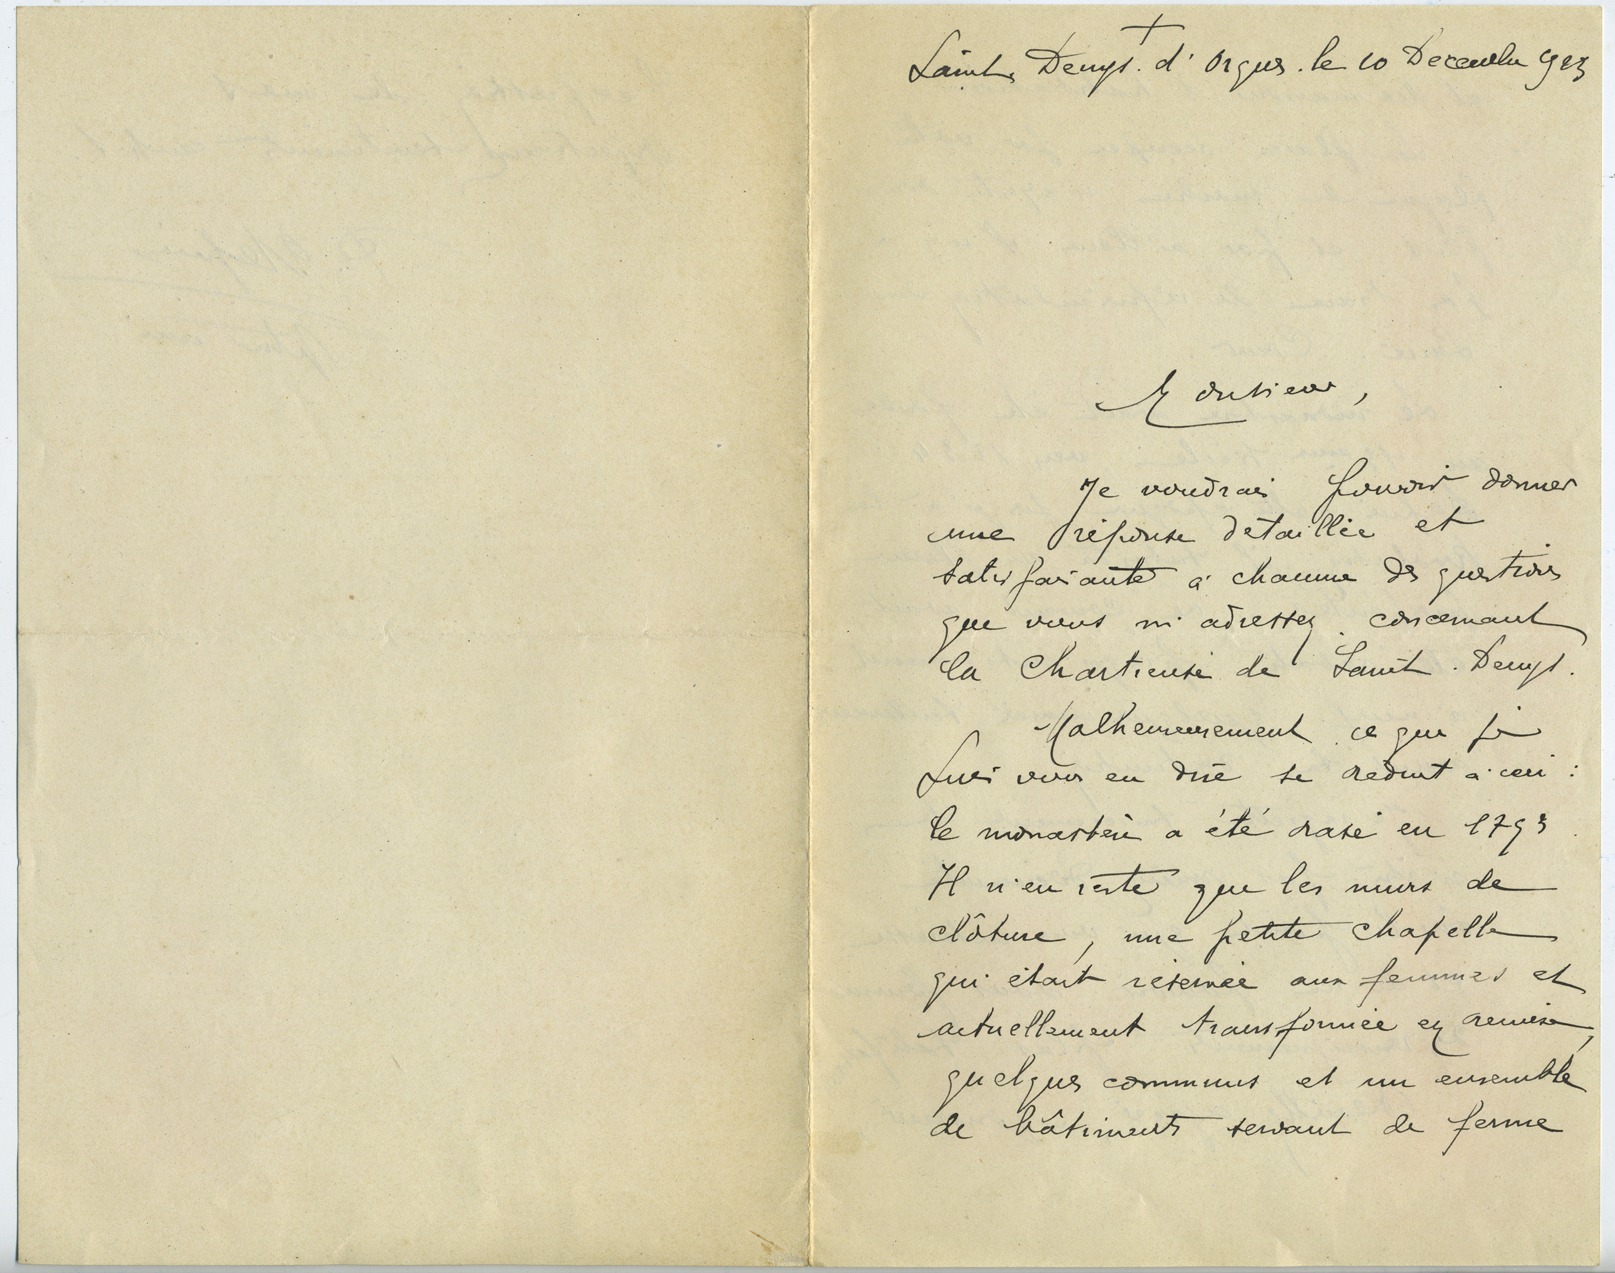 Saint Denys. d'Orques. le 10 Decembre 1923
Monsieur,
Je voudrais pouvoir donner
une réponse détaillée et
satisfaisante à chacune des questions
que vous m'adressez concernant
la Chartreuse de Saint. Denys.
Malheureusement ce que je
puis vous en dire se reduit à ceci :
le monastère a été rasé en 1793
Il n'en reste que les murs de
clôture, une petite chapelle
qui était réservée aux femmes et
actuellement transformée en remise,
quelques communs et un ensemble
de bâtiments servant de ferme